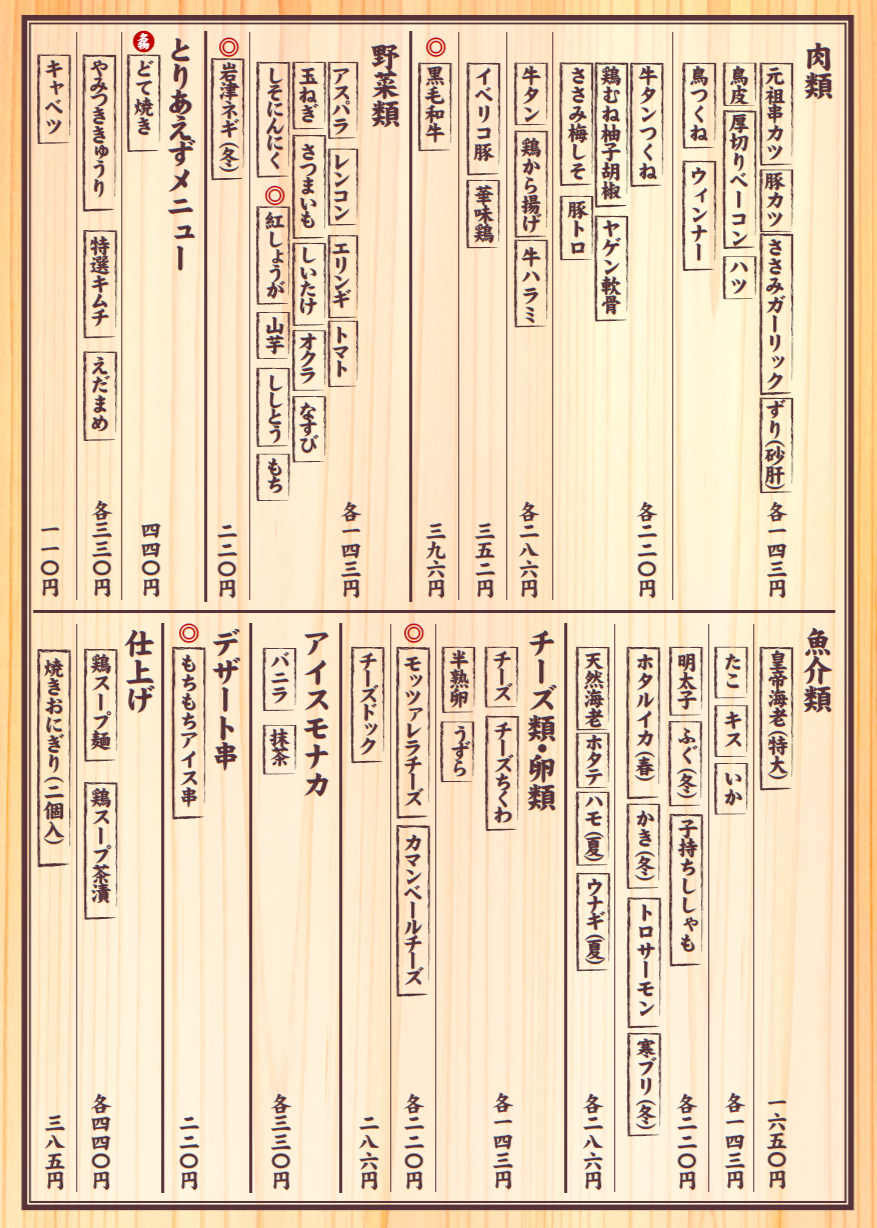 肉類
元祖串カツ 豚カツ ささみガーリック ずり(砂肝)
鳥皮 厚切りベーコン ハツ
鳥つくね ウィンナー
各一四三円
牛タンつくね
鶏むね柚子胡椒 ヤゲン軟骨
ささみ梅しそ 豚トロ
各二二〇円
牛タン 鶏から揚げ 牛ハラミ
各二八六円
イベリコ豚 華味鶏
三五二円
◎黒毛和牛
三九六円
野菜類
アスパラ レンコン エリンギ トマト
玉ねぎ さつまいも しいたけ オクラ なすび
しそにんにく ◎紅しょうが 山芋 ししとう もち
各一四三円
◎岩津ネギ(冬)
二二〇円
とりあえずメニュー
名物 どて焼き
四四〇円
やみつききゅうり 特選キムチ えだまめ
各三三〇円
キャベツ
一一〇円
魚介類
皇帝海老(特大)
一六五〇円
たこ キス いか
各一四三円
明太子 ふぐ(冬) 子持ちししゃも
ホタルイカ(春) かき(冬) トロサーモン 寒ブリ(冬)
各二二〇円
天然海老 ホタテ ハモ(夏) ウナギ(夏)
各二八六円
チーズ類・卵類
チーズ チーズちくわ
半熟卵 うずら
各一四三円
◎モッツァレラチーズ カマンベールチーズ
各二二〇円
チーズドック
二八六円
アイスモナカ
バニラ 抹茶
各三三〇円
デザート串
◎もちもちアイス串
二二〇円
仕上げ
鶏スープ麺 鶏スープ茶漬
各四四〇円
焼きおにぎり(二個入)
三八五円